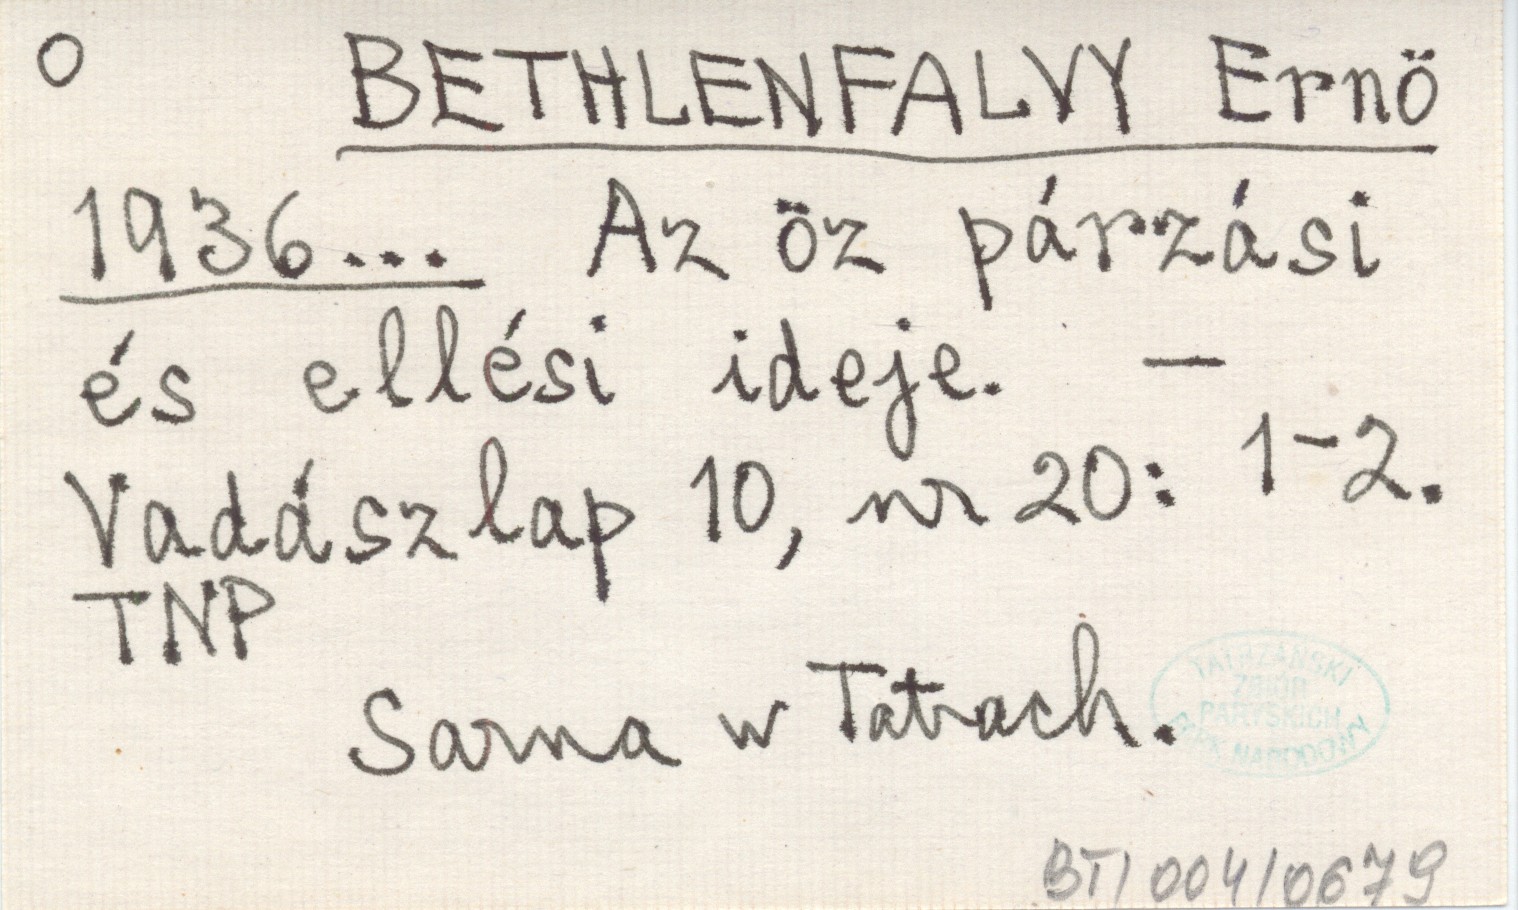 O BETHLENFALVY Ernö
1936... Az öz párzási
és ellési ideje. –
Vadászlap 10, nr 20: 1-2.
TNP
Sarna w Tatrach.
TATRZAŃSKI
ZBIÓR
PARYSKICH
PARK NARODOWY
BT/004/0679